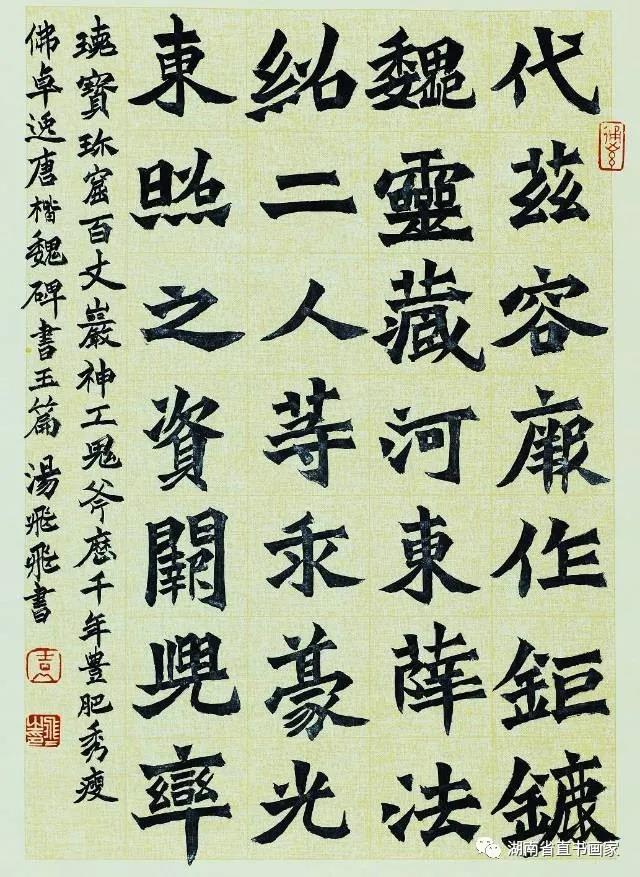 代茲容厥作鉅鏕
魏靈藏河東薛法
紹二人等求豪光
東照之資闕兜率
寶珍窟百丈巖神工鬼斧歷千年豐肥秀瘦
佛卓逸唐楷魏碑書玉篇 湯飛飛書
湖南省直书画家